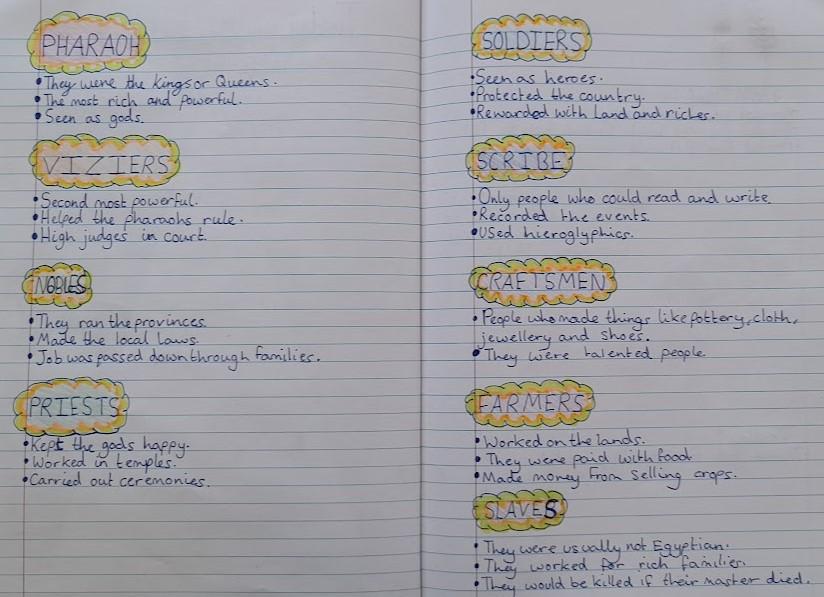 PHARAOH
• They were the kings or Queens.
• The most rich and powerful.
• Seen as gods.
VIZIERS
• Second most powerful.
• Helped the pharaohs rule.
• High judges in court.
NOBLES
• They ran the provinces.
• Made the local laws.
• Job was passed down through families.
PRIESTS
• Kept the gods happy.
• Worked in temples.
• Carried out ceremonies.
SOLDIERS
• Seen as heroes.
• Protected the country.
• Rewarded with Land and riches.
SCRIBE
• Only people who could read and write.
• Recorded the events.
• Used hieroglyphics.
CRAFTSMEN
• People who made things like pottery, cloth,
jewellery and shoes.
• They were talented people.
FARMERS
• Worked on the lands.
• They were paid with food.
• Made money from selling crops.
SLAVES
• They were usually not Egyptian.
• They worked for rich families.
• They would be killed if their master died.